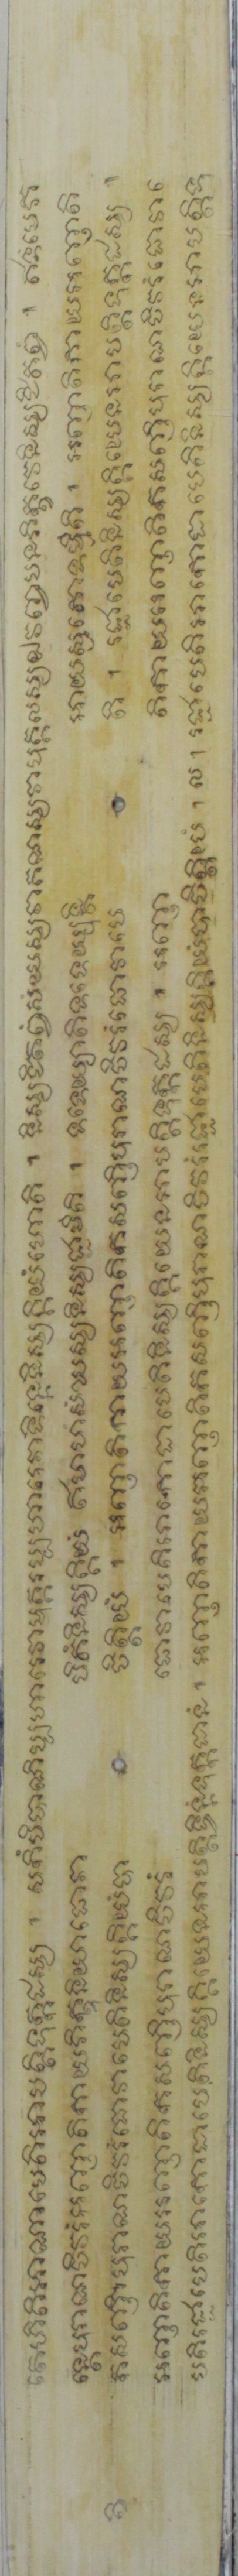 គេហិតិអាណាបេតិអាបត្តិទុក្កដស្ស ។ សកិំបិចាណិប្បហារេនវាមុគ្គរប្បហារេនវាទិន្នេនិស្សគ្គិយំហោតិ ។ និស្សជិតព្វំសំឃស្សវាគណស្សវាបុគ្គលស្សវាឯវញ្ចបនភិក្ខវេនិស្សជិតព្វំ ។ ឥទំមេភ
ន្តេបុរាណចីវរំអញ្ញាតិកាយភិក្ខុនិយាធោវា បិតំនិស្សគ្គិយំ ឥមាហំសំឃស្សនិស្សជ្ជាមីតិ ។ ទទេយ្យាតិទទេយ្យុន្តិ អាយស្មតោទម្មីតិ ។ អញ្ញាតិកាយអញ្ញាតិ
កសញ្ញីបុរាណចីវរំធោវាបេតិនិស្សគ្គិយំបា ចិត្តិយំ ។ អញ្ញាតិកាយអញ្ញាតិកសញ្ញីបុរាណចីវរំធោវាបេ តិ ។ រជាបេតិនិស្សគ្គិយេនអាបត្តិទុក្កដស្ស ។
អញ្ញាតិកាយអញ្ញាតិកសញ្ញីបុរាណចីវរំ ធោវាបេតិអាកោដាបេតិនិស្សគ្គិយេនអាបត្តិទុក្កដស្ស ។ អញ្ញា តិកាយអញ្ញាតិកសញ្ញីបុរាណចីវរំធោវាបេ
តិរជាបេតិអាកោដាបេតិនិស្សគ្គិយេនអាបត្តិទ្វិន្នំទុក្កដានំ ។ អញ្ញាតិកាយអញ្ញាតិកសញ្ញីបុរាណចីវរំរជាបេតិនិស្សគ្គិយំបាចិត្តិយំ ។ ល ។ រជាបេតិអាកោដាបេតិនិស្សគ្គិយេនអាបត្តិទុ